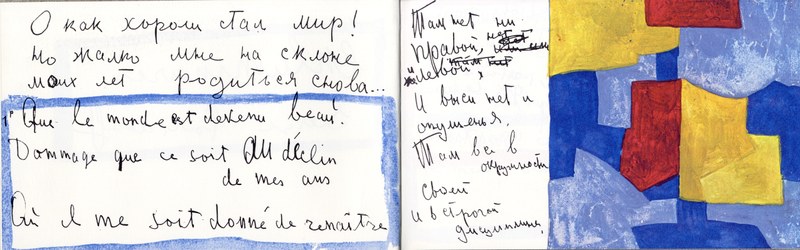 О как хорош стал мир!
но жалко мне на склоне
моих лет родиться снова...
Que le monde est devenu beau.
Dommage que ce soit au déclin
de mes ans
Où il me soit donné de renaître
Там нет ни
правой, нет
и левой,
И выси нет и
опушенья.
Там все в
окружности
своей
и в строгой
дисциплине.